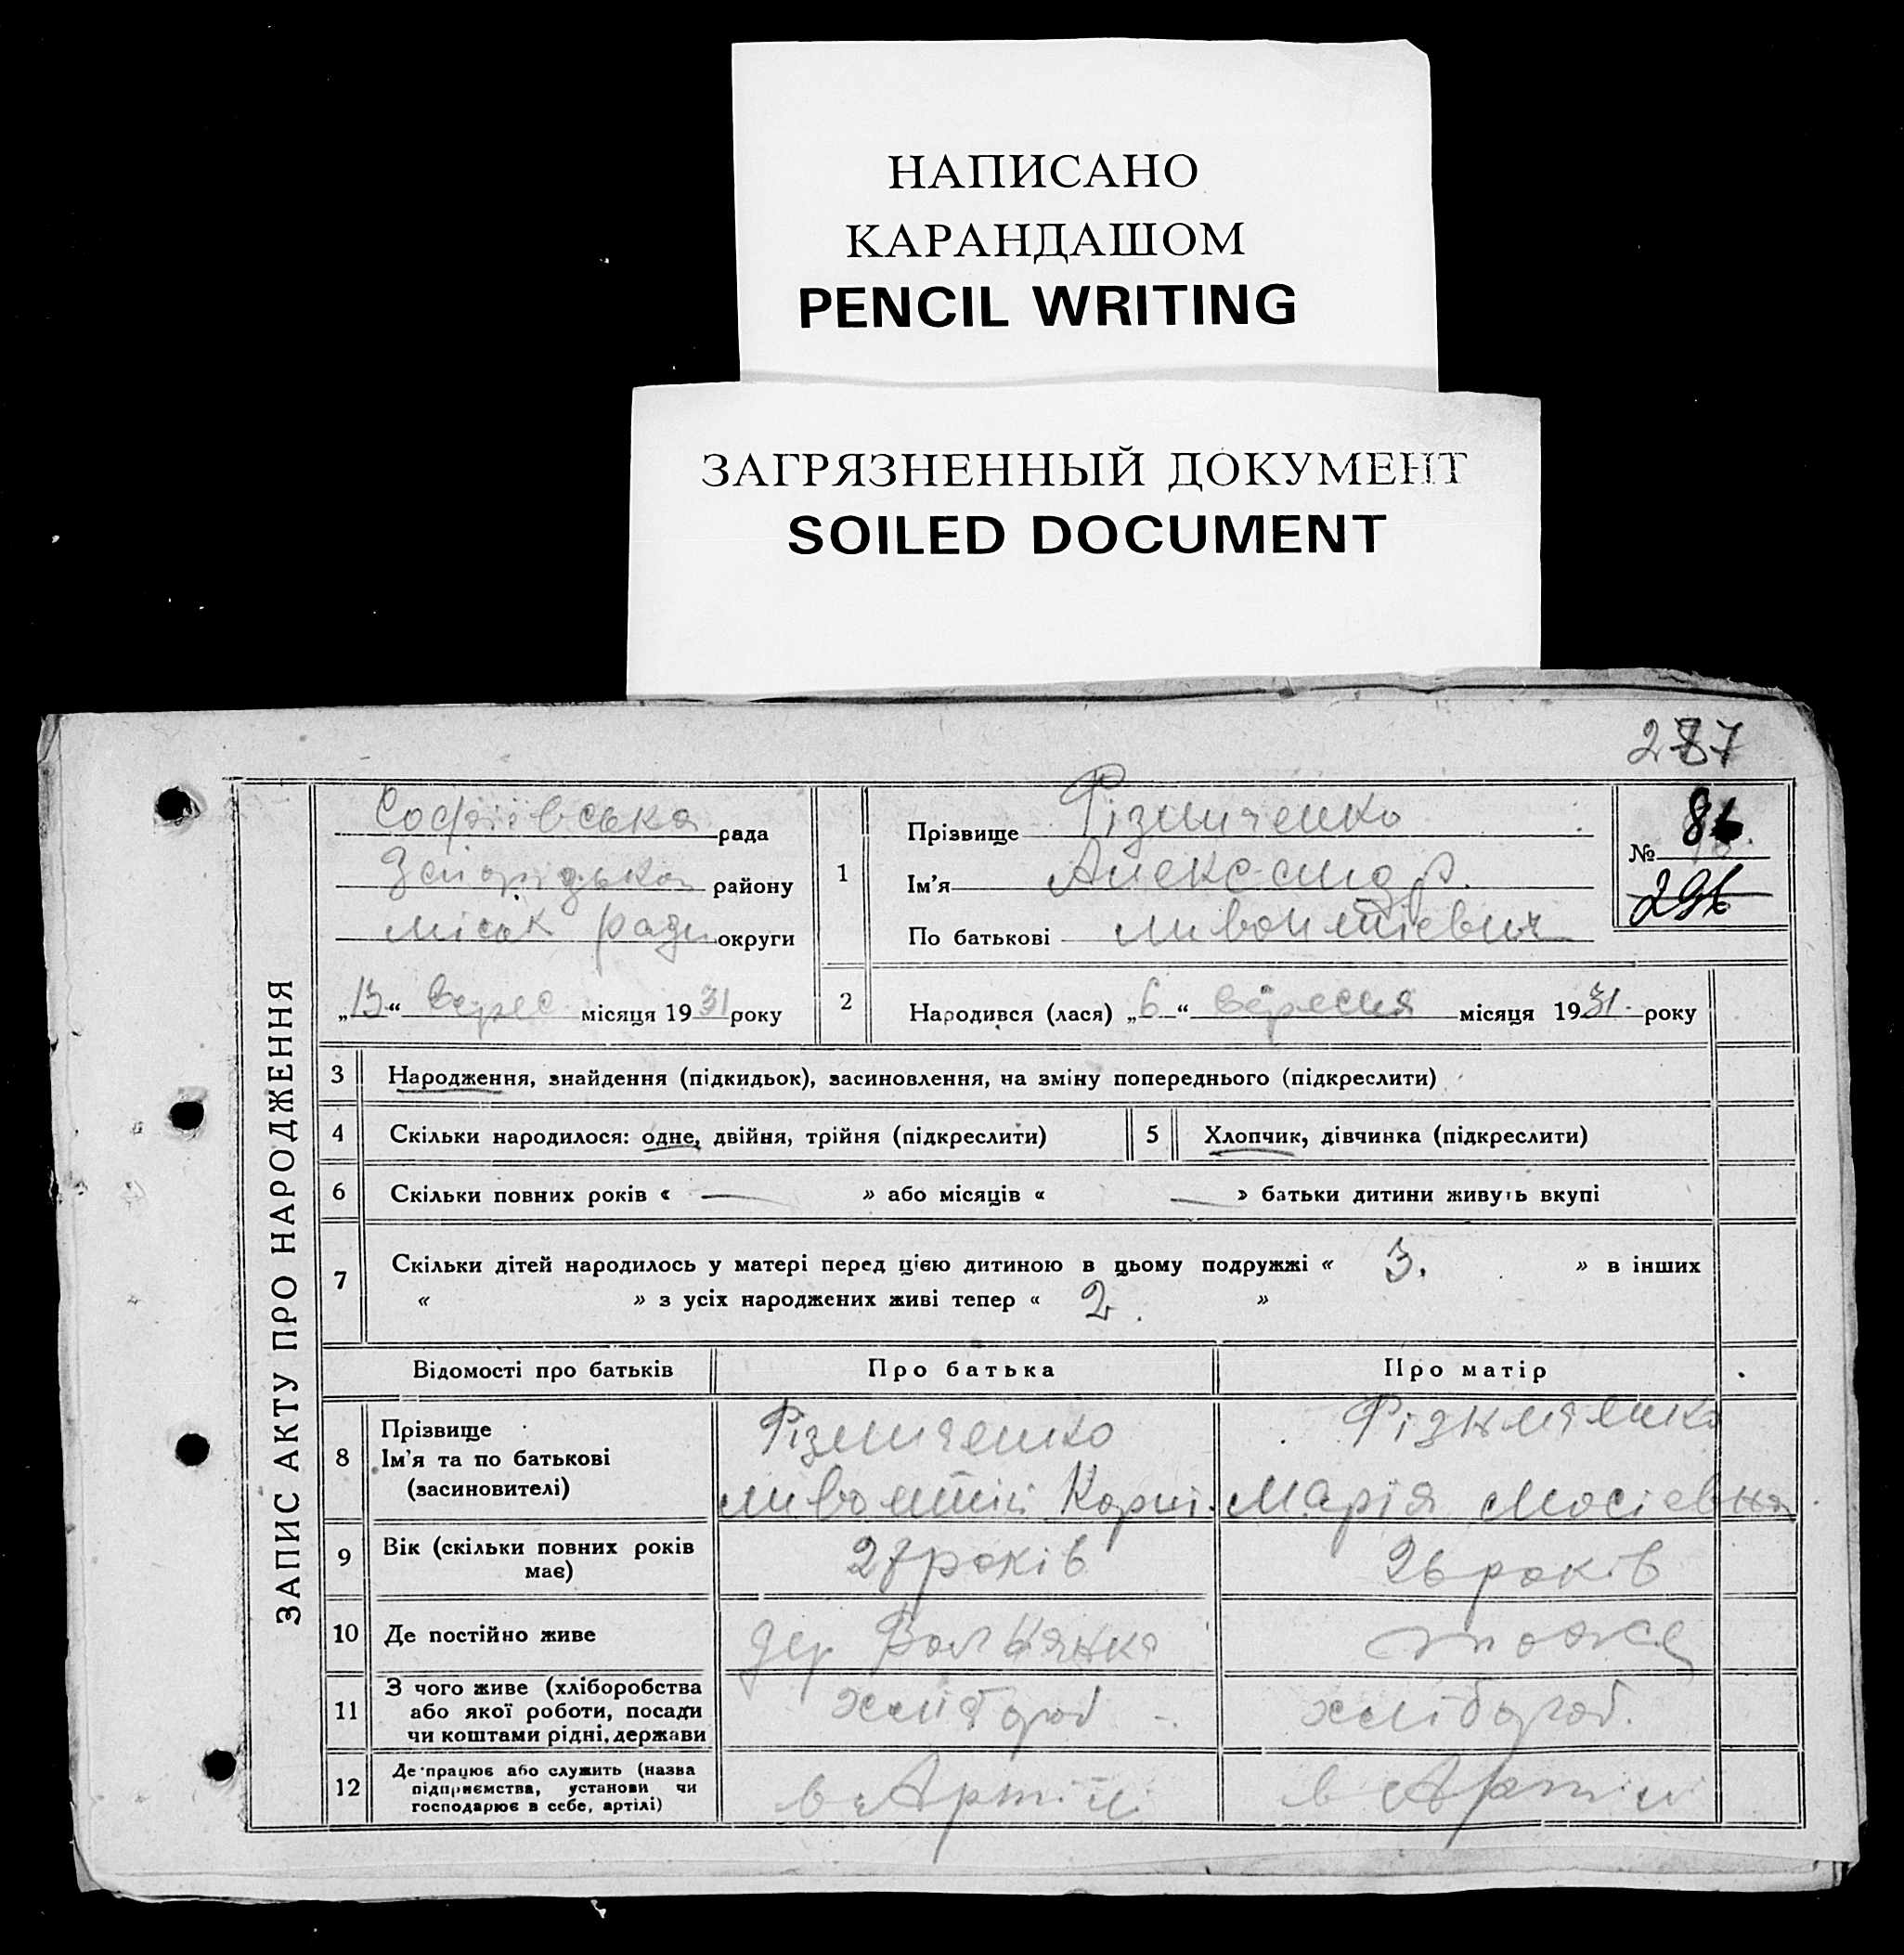 НАПИСАНО
КАРАНДАШОМ
PENCIL WRITING
ЗАГРЯЗНЕННЫЙ ДОКУМЕНТ
SOILED DOCUMENT
ЗАПИС АКТУ ПРО НАРОДЖЕННЯ
Софіївська рада
району
міськ ради округи
„13“ верес місяця 1931 року
1
Прізвище Різниченко
Ім'я Александр.
По батькові
№ 
296
2
Народився (лася) „6“ вересня місяця 1931. року
3 Народження, знайдення (підкидьок), засиновлення, на зміну попереднього (підкреслити)
4 Скільки народилося: одне, двійня, трійня (підкреслити) 5 Хлопчик, дівчинка (підкреслити)
6 Скільки повних років « — » або місяців « — » батьки дитини живуть вкупі
7 Скільки дітей народилось у матері перед цією дитиною в цьому подружжі « 3. » в інших
« » з усіх народжених живі тепер « 2. »
Відомості про батьків Про батька Про матір
8 Прізвище
Ім'я та по батькові
(засиновителі)
Різниченко
Корні.
Різниченко
Марія Мосієвна
9 Вік (скільки повних років
має)
27 років
26 років
10 Де постійно живе
дер
тоже
11 З чого живе (хліборобства
або якої роботи, посади
чи коштами рідні, держави
хлібороб
хлібороб.
12 Де працює або служить (назва
підприємства, установи чи
господарює в себе, артілі)
в Артілі
в Артілі